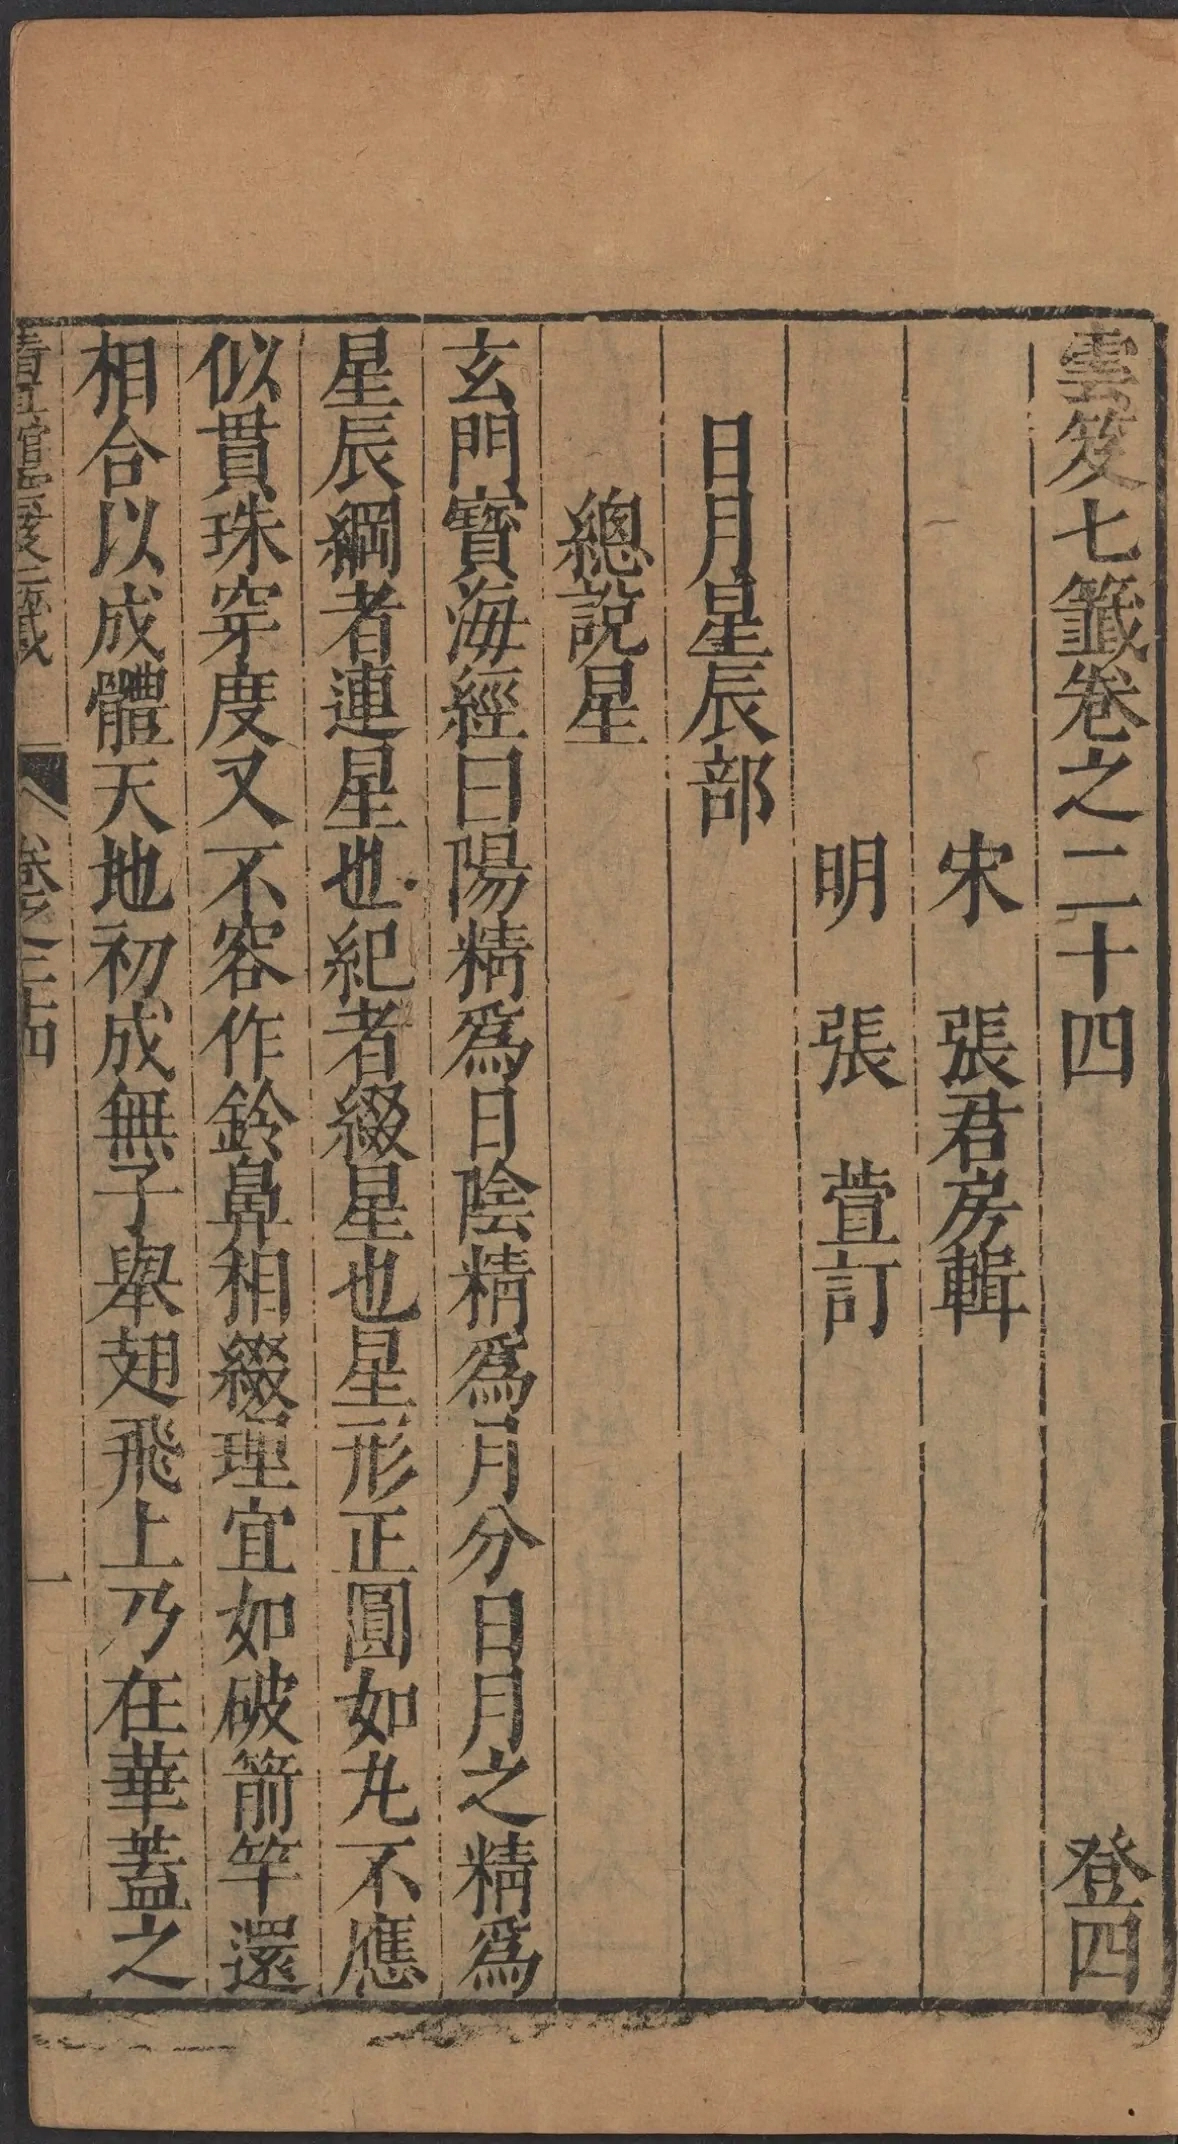 雲笈七籤卷之二十四 登四
宋 張君房輯
明 張 萱訂
日月星辰部
總說星
玄門寶海經曰陽精爲日陰精爲月分日月之精爲
星辰綱者連星也紀者綴星也星形正圓如丸不應
似貫珠穿度又不容作鈴鼻相綴理宜如破箭竿還
相合以成體天地初成無子舉翅飛上乃在華蓋之
清真館雲笈七籤 卷之二十四 一